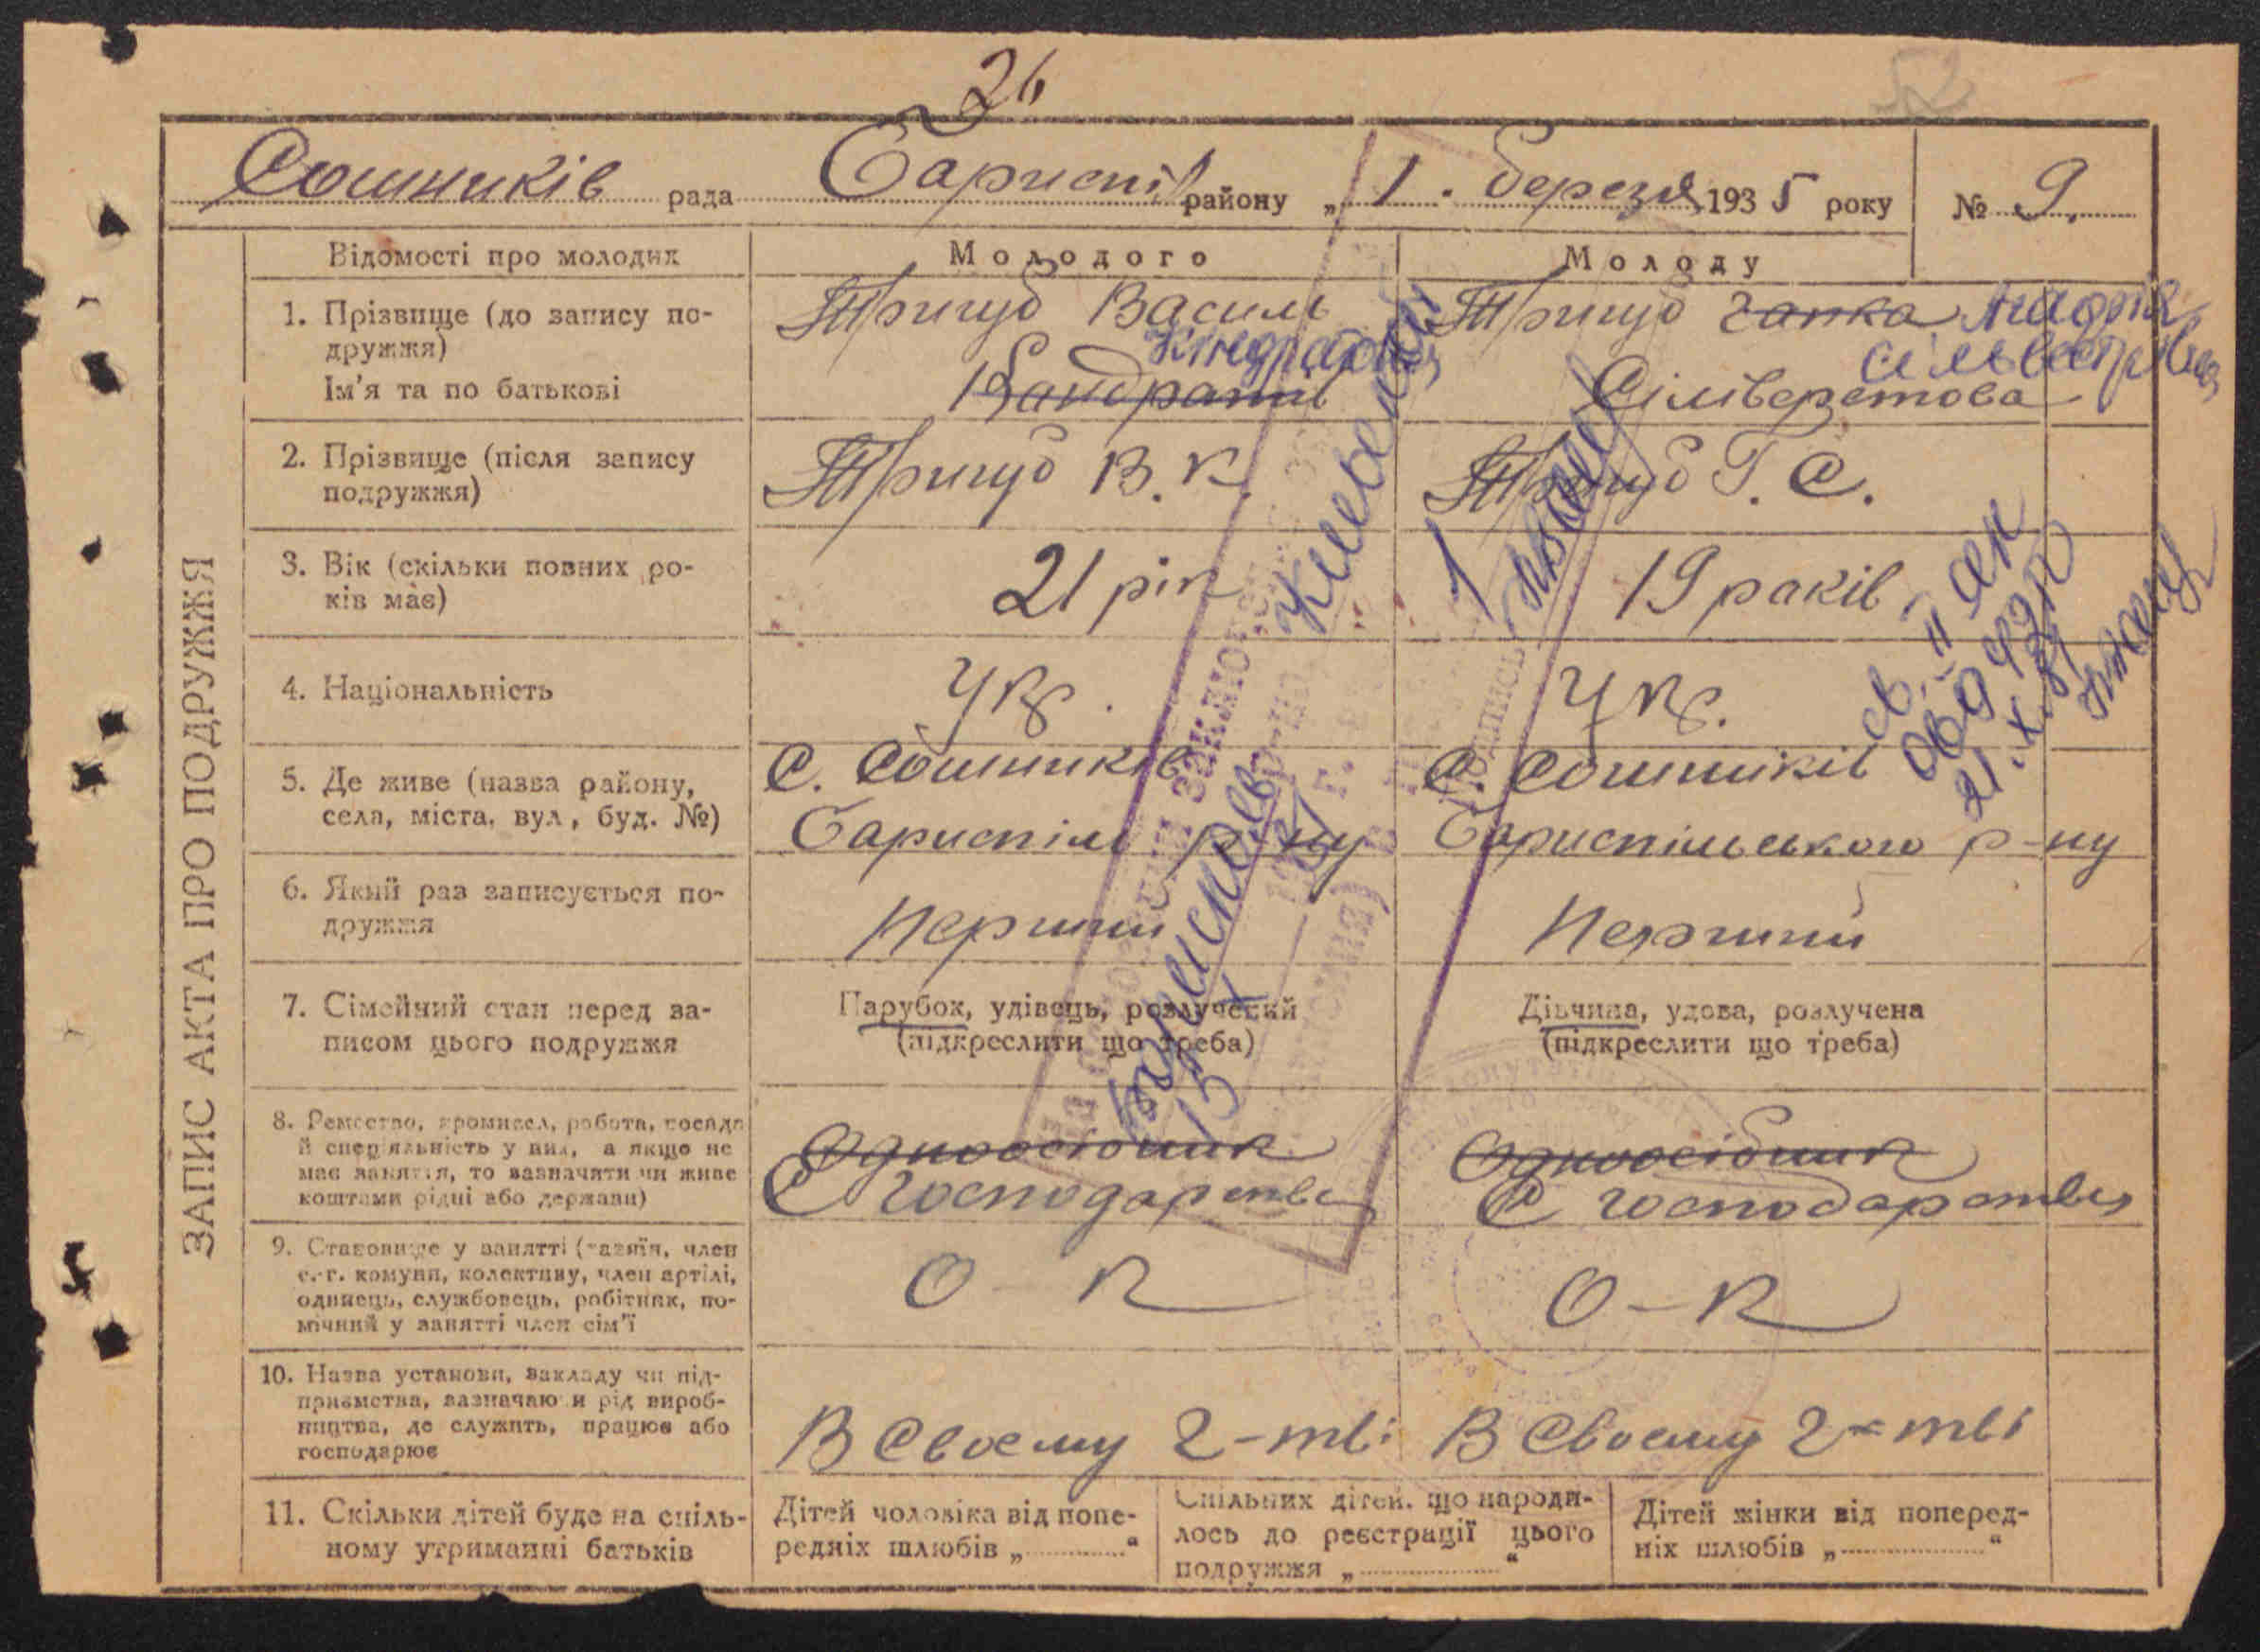 26
Сошників рада Бариспіл району „ 1 . березня 1935 року № 9.
ЗАПИС АКТА ПРО ПОДРУЖЖЯ
Відомості про молодих
Молодого
Молоду
1. Прізвище (до запису по-
дружжя)
Ім'я та по батькові
Тригуб Василь
Кандратів
Тригуб Ганка
Сіліверстова
2. Прізвище (після запису
подружжя)
Тригуб В. К.
Тригуб Г. С.
3. Вік (скільки повних ро-
ків має)
21 рік
19 раків
4. Національність
Укр.
Укр.
5. Де живе (назва району,
села, міста, вул, буд. №)
С. Сошників
Бариспіль р-ну
С. Сошників
Бариспільського р-ну
6. Який раз записується по-
дружжя
Перший
Перший
7. Сімейний стан перед за-
писом цього подружжя
Парубок, удівець, розлучений
(підкреслити що треба)
Дівчина, удова, розлучена
(підкреслити що треба)
8. Ремество, промисел, робота, посада
й спеціяльність у них, а якщо не
має заняття, то зазначити чи живе
коштами рідні або держави)
Одноосібник
С господарства
Одноосібник
С господарства
9. Становище у занятті (хазяїн, член
с.-г. комуни, колективу, член артілі,
одинець, службовець, робітник, по-
мічний у занятті член сім'ї
О - К
О - К
10. Назва установи, закладу чи під-
приємства, зазначаючи рід вироб-
ництва, де служить, працює або
господарює
В своему г-тві
В своему г-тві
11. Скільки дітей буде на спіль-
ному утриманні батьків
Дітей чоловіка від попе-
редніх шлюбів „ “
Спільних дітей, що народи-
лось до реєстрації цього
подружжя „ “
Дітей жінки від поперед-
ніх шлюбів „ “